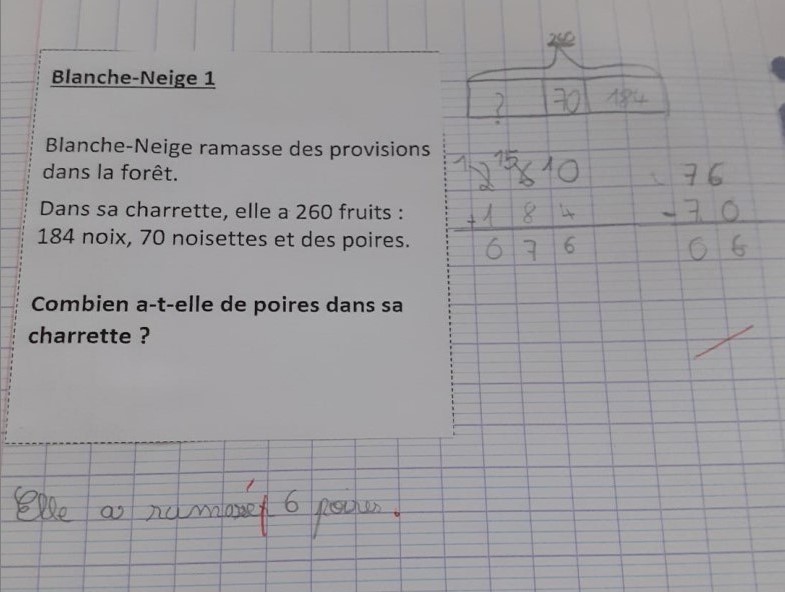 Blanche-Neige 1
Blanche-Neige ramasse des provisions
dans la forêt.
Dans sa charrette, elle a 260 fruits :
184 noix, 70 noisettes et des poires.
Combien a-t-elle de poires dans sa
charrette ?
260
? 70 184
1 2 15 6 10
+ 1 8 4
0 7 6
7 6
- 7 0
0 6
Elle a ramassé 6 poires.